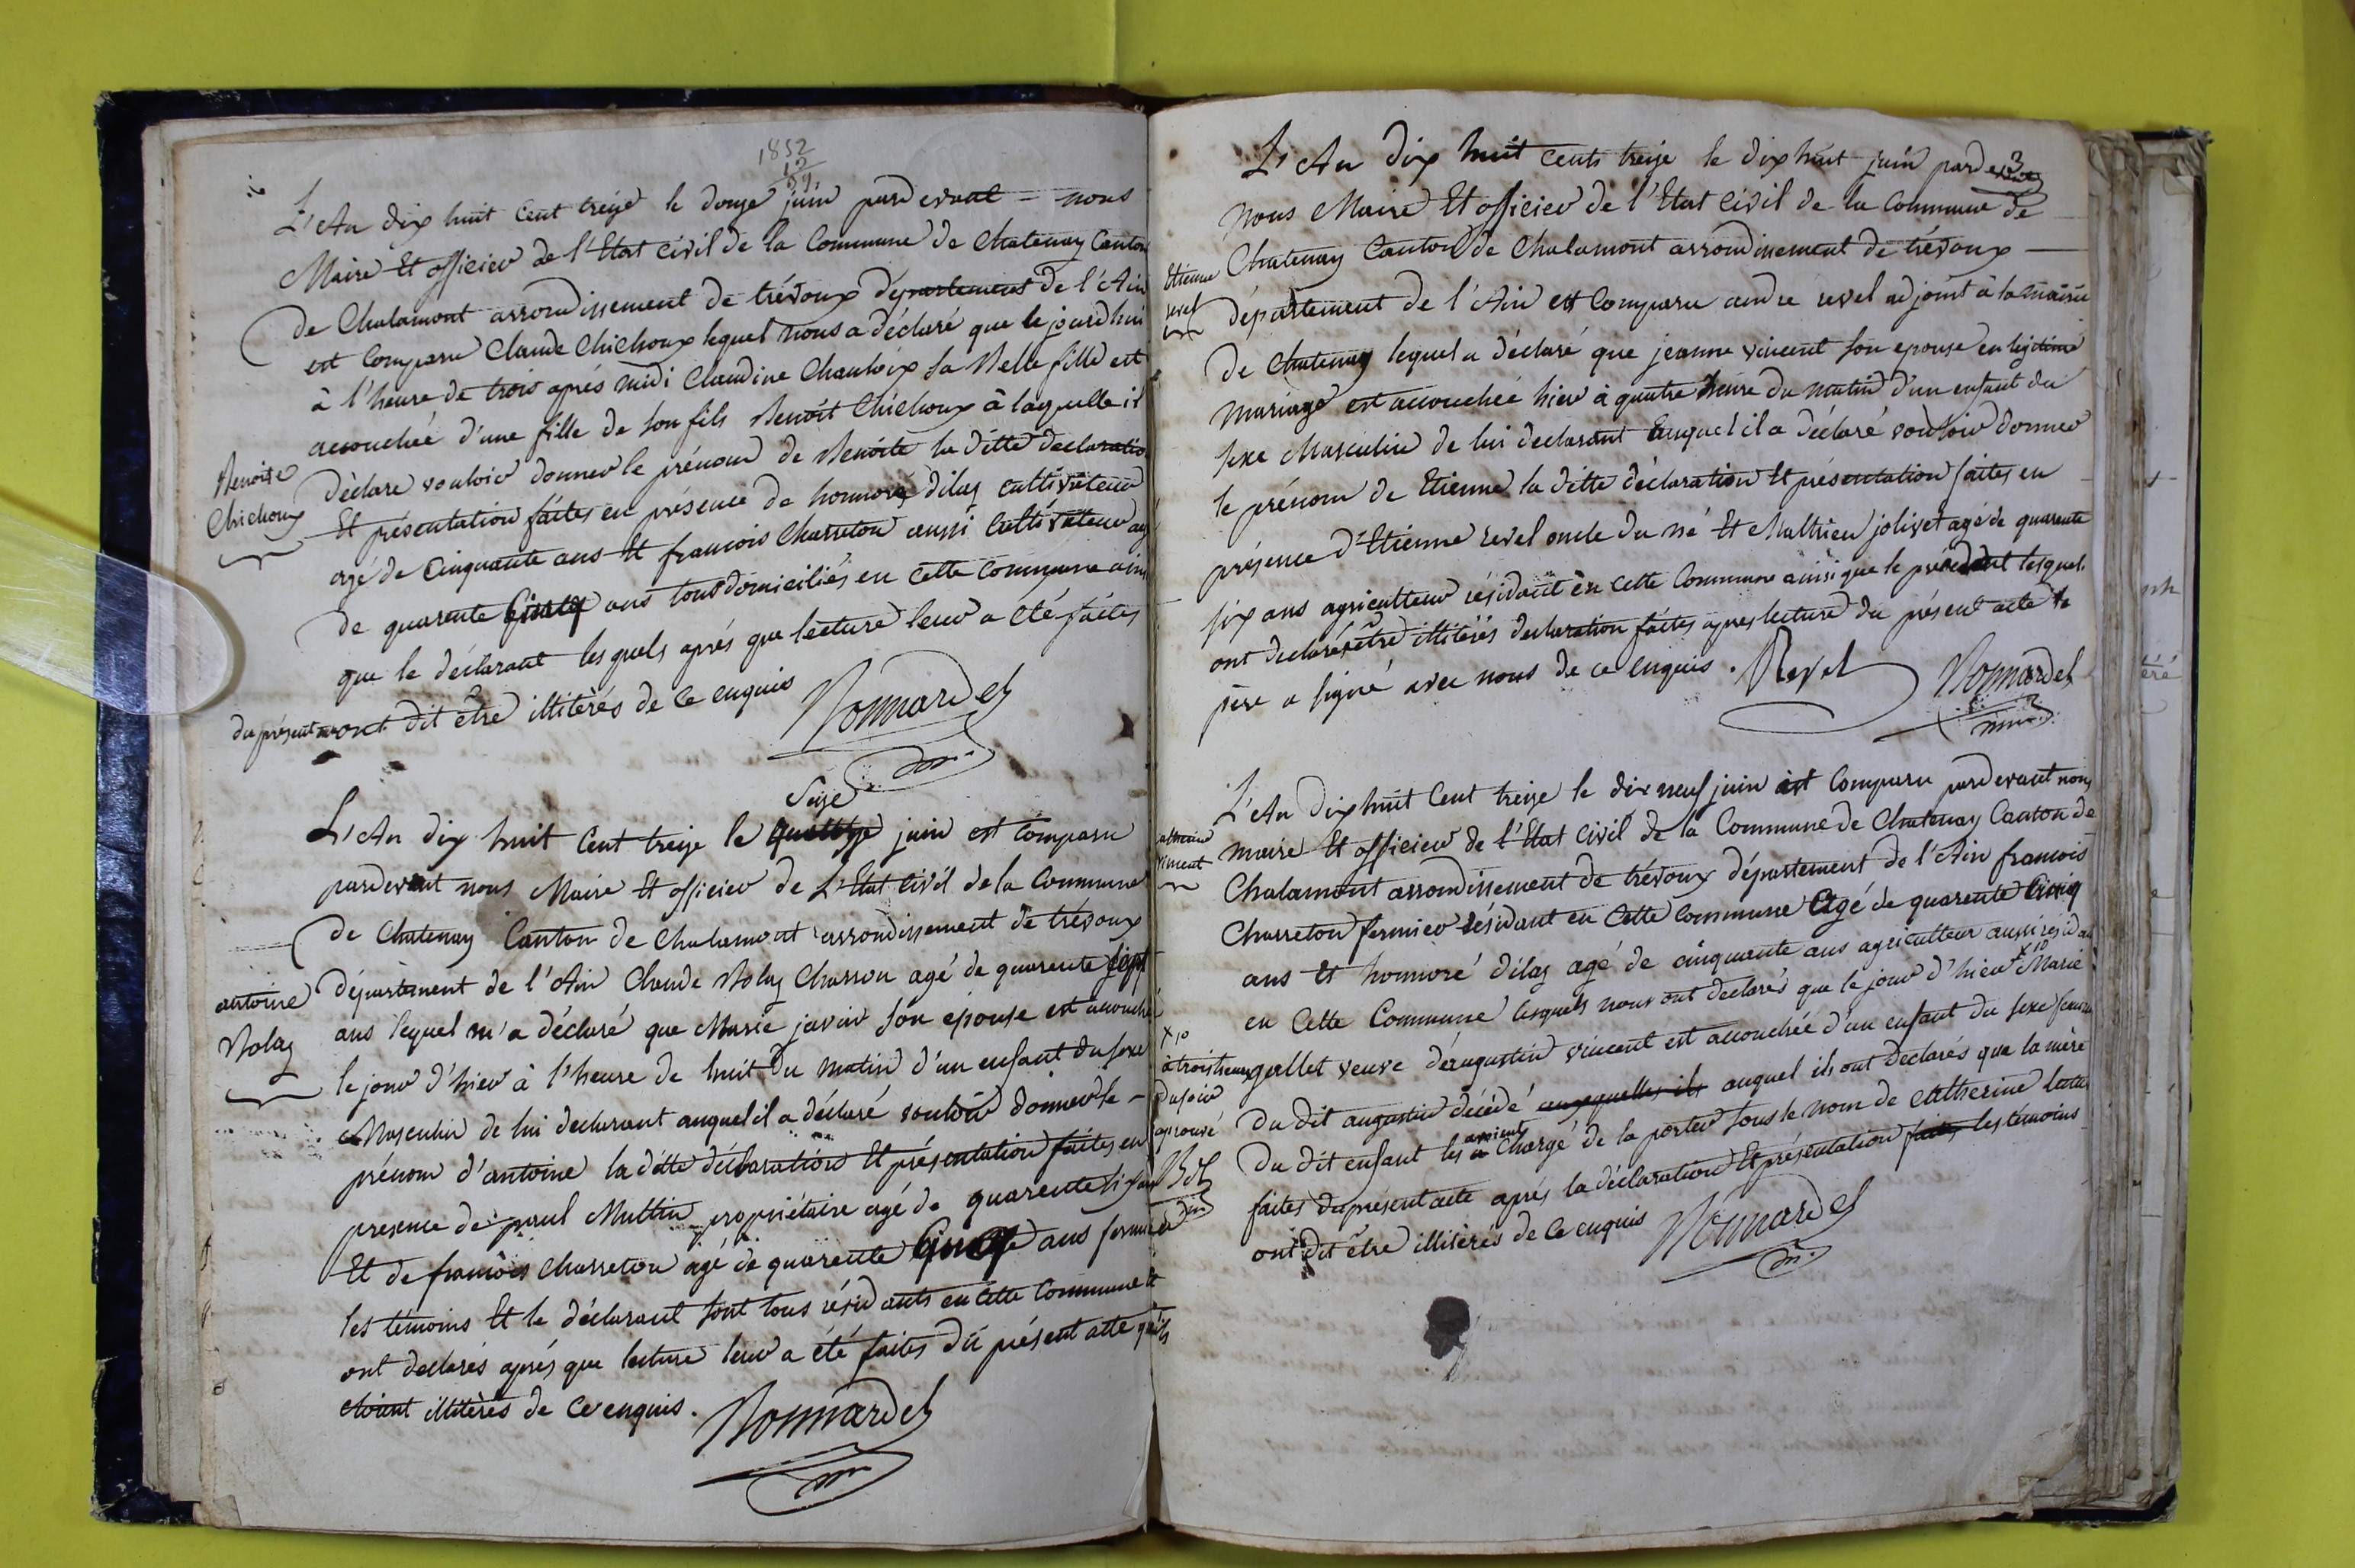 1852
12
59
L'An dix huit Cent treize le douze juin pardevant = nous
Maire Et officier de l'Etat Civil de la Commune de Chatenay Canton
de Chalamont arrondissement de trévoux département de l'Ain
est Comparu Claude Chichoux lequel nous a déclaré que le jourdhui
à l'heure de trois après midi Claudine Chauloix sa Belle fille est
accouchée d'une fille de son fils Benoit Chichoux à laquelle il
Benoite
Chichoux
déclare vouloir donner le prénom de Benoite la ditte declaration
Et présentation faites en présence de honnoré dilas cultivateur
agé de Cinquante ans Et francois Charreton aussi Cultivateur agé
de quarente Cinq ans tous domiciliés en cette Commune ainsi
que le déclarant lesquels aprés que lecture leur a été faites
du présent ont dit être illitérés de Ce enquis
Bonnardel
Seize
L'An dix huit Cent treize le quattorze juin est Comparu
pardevant nous Maire Et officier de L'Etat Civil de la Commune
de Chatenay Canton de Chalamont arrondissement de trévoux
département de l'Ain Claude Bolas Chasson agé de quarente sept
antoine
Bolas
ans lequel m'a déclaré que Marie javoir son épouse est accouché
le jour d'hier à l'heure de huit du matin d'un enfant du sexe
Masculin de lui declarant auquel il a déclaré vouloir donner le -
prénom d'antoine la ditte déclaration Et présentation faites en
presence de paul Muttin propriétaire agé de quarente six ans
Et de francois Charreton agé de quarente Cinq ans fermier
les témoins Et le déclarant sont tous résidants en Cette Commune Et
ont declarés aprés que lecture leur a été faites du présent acte qu'ils
étoient illitérés de Ce enquis.
Bonnardel
3
L'An dix huit Cents treize le dix huit juin pardevant
nous Maire Et officier de l'Etat Civil de la Commune de
Chatenay Canton de Chalamont arrondissement de trévoux
Etienne
revel
département de l'Ain est Comparu andre revel adjoint à la mairie
de Chatenay lequel a déclaré que jeanne vincent son epouse en légitime
mariage est accouchée hier à quatre heure du matin d'un enfant du
sexe Masculin de lui declarant auquel il a déclaré vouloir donner
le prénom de Etienne la ditte déclaration Et présentation faites en
présence d'Etienne revel oncle du né Et Mathieu jolivet agé de quarente
six ans agriculteur résidant en cette Commune ainsi que le précédent lesquels
ont declarés être illitérés declaration faites apres lecture du présent acte le
père a signé avec nous de ce enquis. Revel Bonnardel
L'An dix huit Cent treize le dix neuf juin est Comparu pardevant nous
atherine
vincent
maire Et officier de l'Etat Civil de la Commune de Chatenay Canton de
Chalamont arrondissement de trévoux département de l'Ain francois
Charreton fermier résidant en Cette Commune Agé de quarente Cinq
ans Et honnoré dilas agé de cinquante ans agriculteur aussi résidant
en Cette Commune lesquels nous ont declarés que le jour d'hier x 10 Marie
x 10
à trois heures
du soir
aprouvé
gallet veuve d'augustin vincent est accouchée d'un enfant du sexe feminin
du dit augustin décédé auxquelles ils auquel ils ont declarés que la mère
du dit enfant les avoient Chargé de la porter sous le nom de Catherine lecture
faites du présent acte aprés la déclaration Et présentation faites les témoins
ont dit être illitérés de Ce enquis Bonnardel